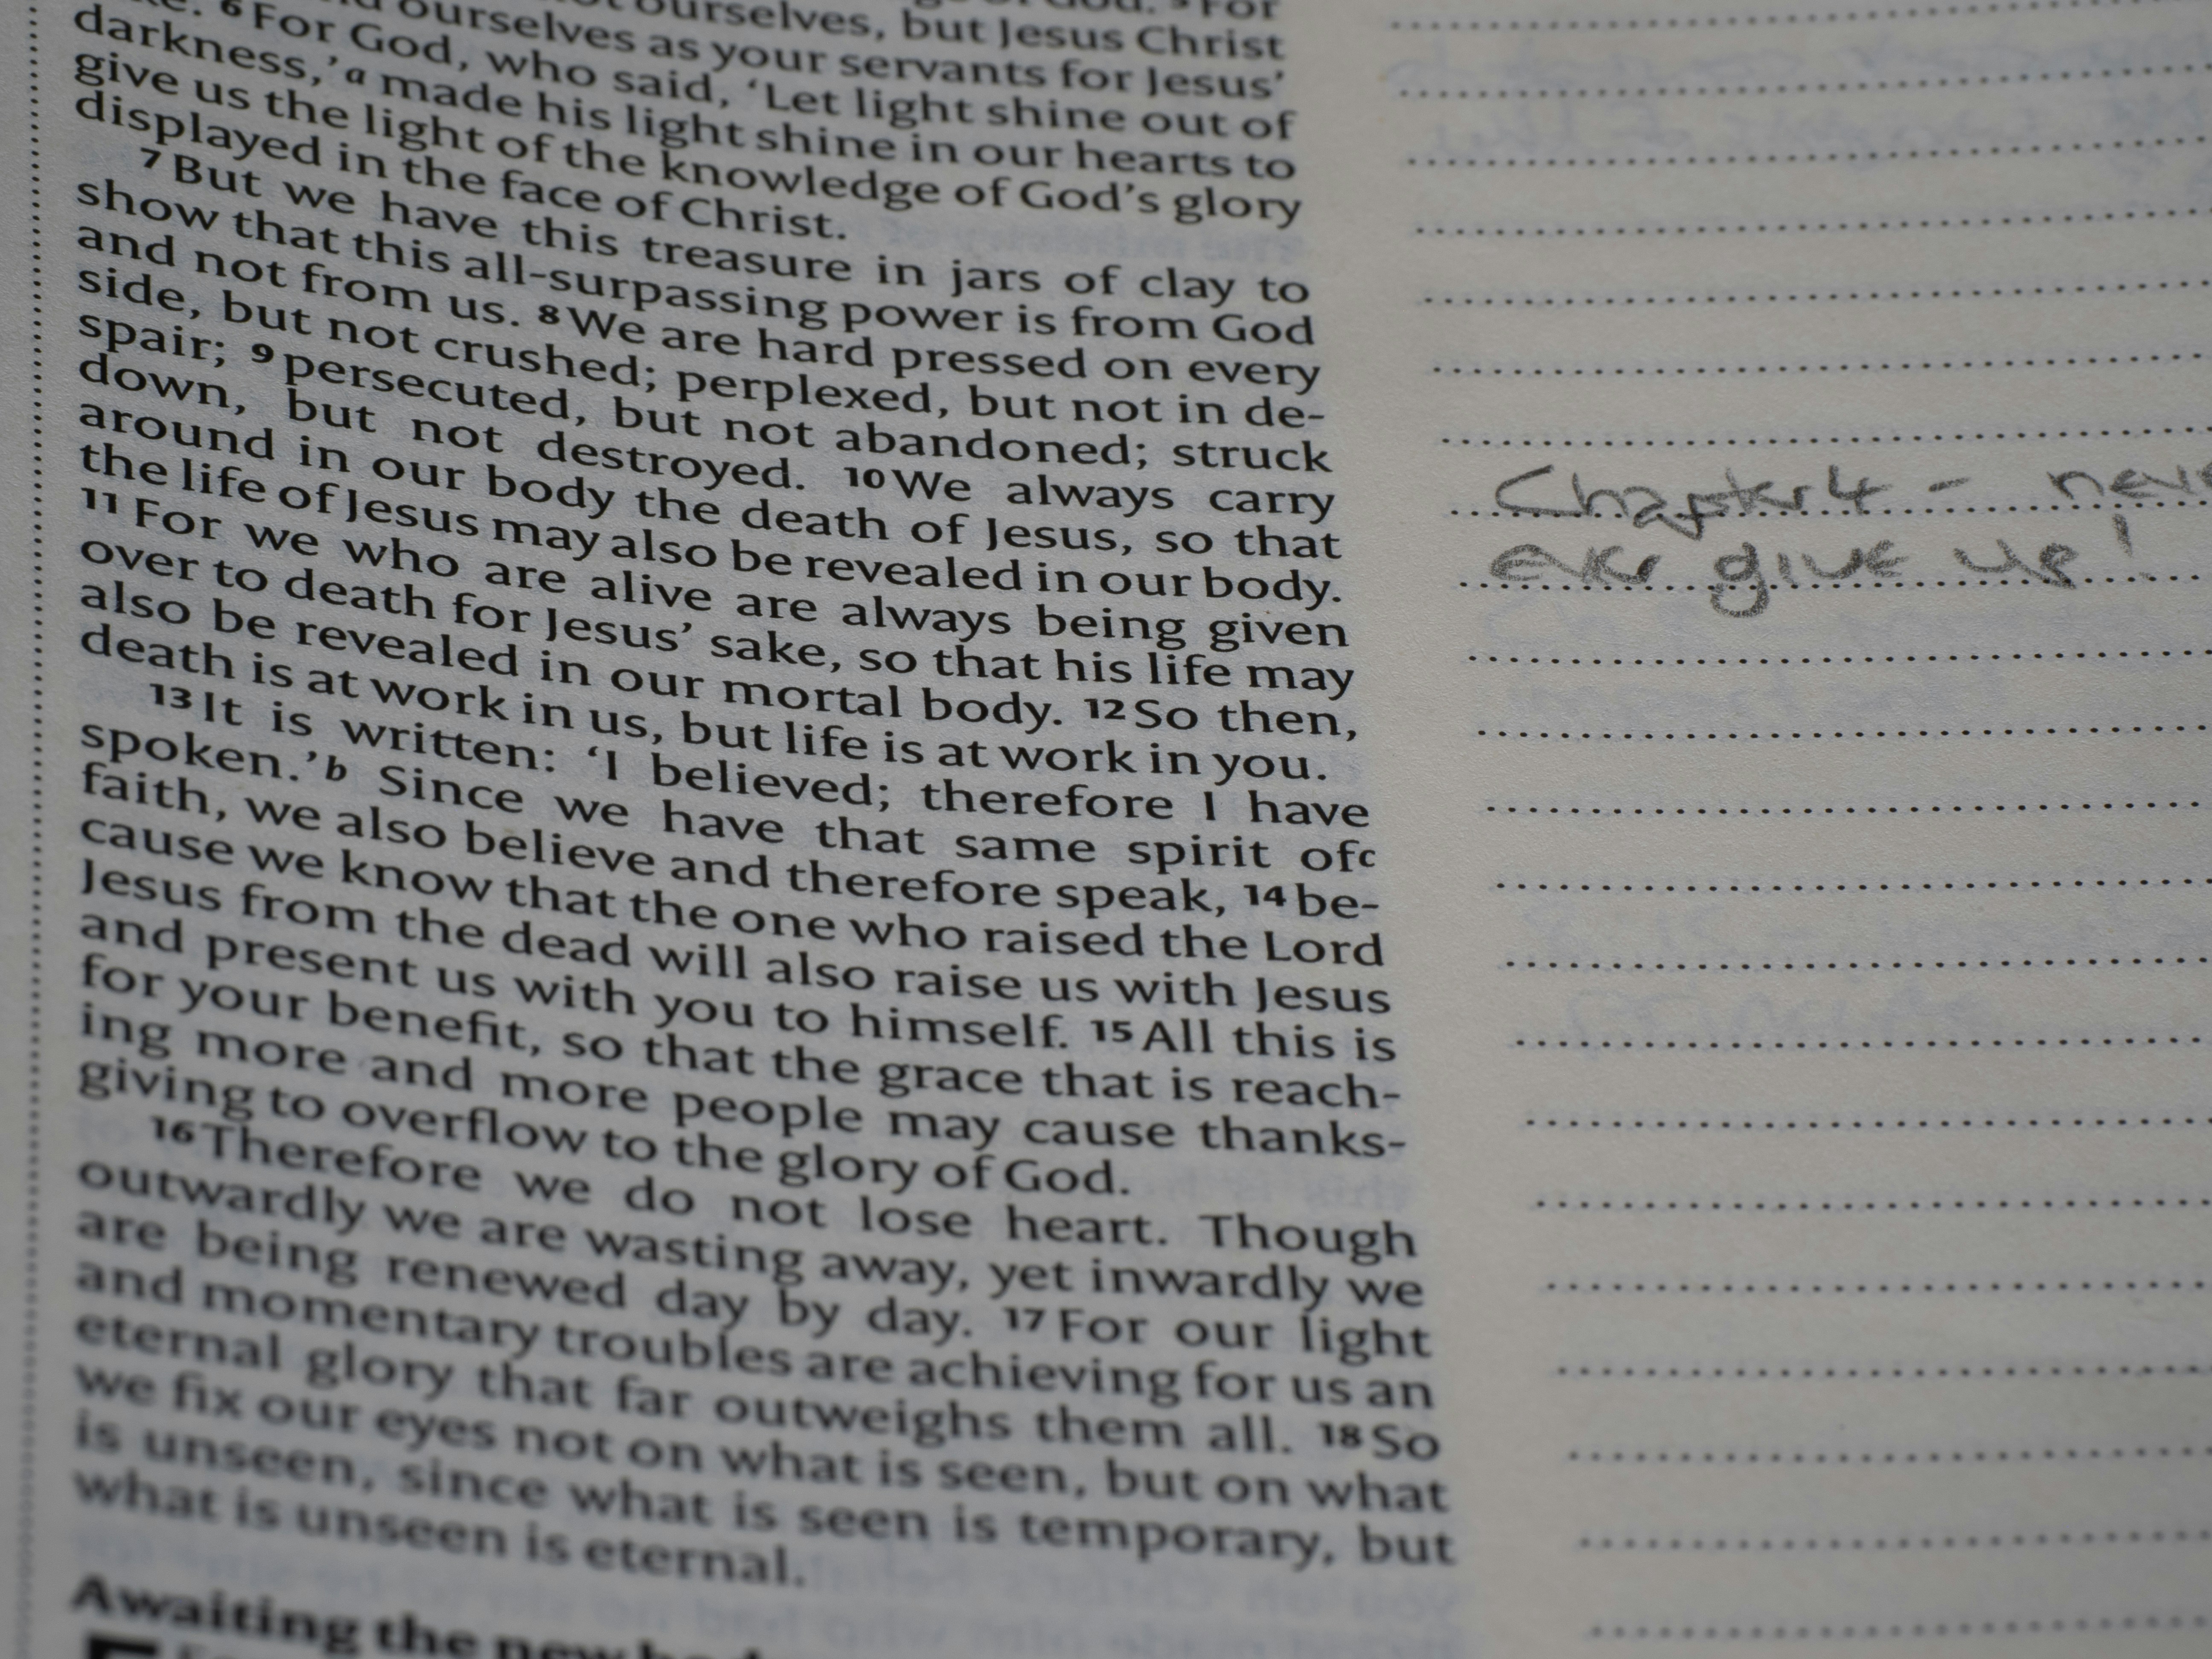 ourselves, but Jesus Christ
ourselves as your servants for Jesus'
6 For God, who said, 'Let light shine out of
darkness,'a made his light shine in our hearts to
give us the light of the knowledge of God's glory
displayed in the face of Christ.
7 But we have this treasure in jars of clay to
show that this all-surpassing power is from God
and not from us. 8 We are hard pressed on every
side, but not crushed; perplexed, but not in de-
spair; 9 persecuted, but not abandoned; struck
down, but not destroyed. 10 We always carry
around in our body the death of Jesus, so that
the life of Jesus may also be revealed in our body.
11 For we who are alive are always being given
over to death for Jesus' sake, so that his life may
also be revealed in our mortal body. 12 So then,
death is at work in us, but life is at work in you.
13 It is written: 'I believed; therefore I have
spoken.'b Since we have that same spirit ofc
faith, we also believe and therefore speak, 14 be-
cause we know that the one who raised the Lord
Jesus from the dead will also raise us with Jesus
and present us with you to himself. 15 All this is
for your benefit, so that the grace that is reach-
ing more and more people may cause thanks-
giving to overflow to the glory of God.
16 Therefore we do not lose heart. Though
outwardly we are wasting away, yet inwardly we
are being renewed day by day. 17 For our light
and momentary troubles are achieving for us an
eternal glory that far outweighs them all. 18 So
we fix our eyes not on what is seen, but on what
is unseen, since what is seen is temporary, but
what is unseen is eternal.
Awaiting the new
Chapter 4 - neve
ever give up!